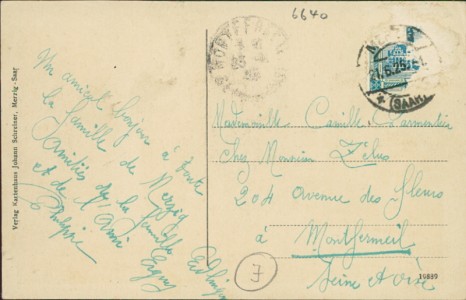 6640
MERZIG
21.6.25
(SAAR)
Un amical bonjour à toute
la famille de Merzig
Amitiés de la famille
et de l'Ami
Philippe
Mademoiselle Camille Larmentier
Chez Monsieur Zélus
204 avenue des fleurs
à Montfermeil
Seine et Oise
F
19889
Verlag Kartenhaus Johann Schreiner, Merzig-Saar